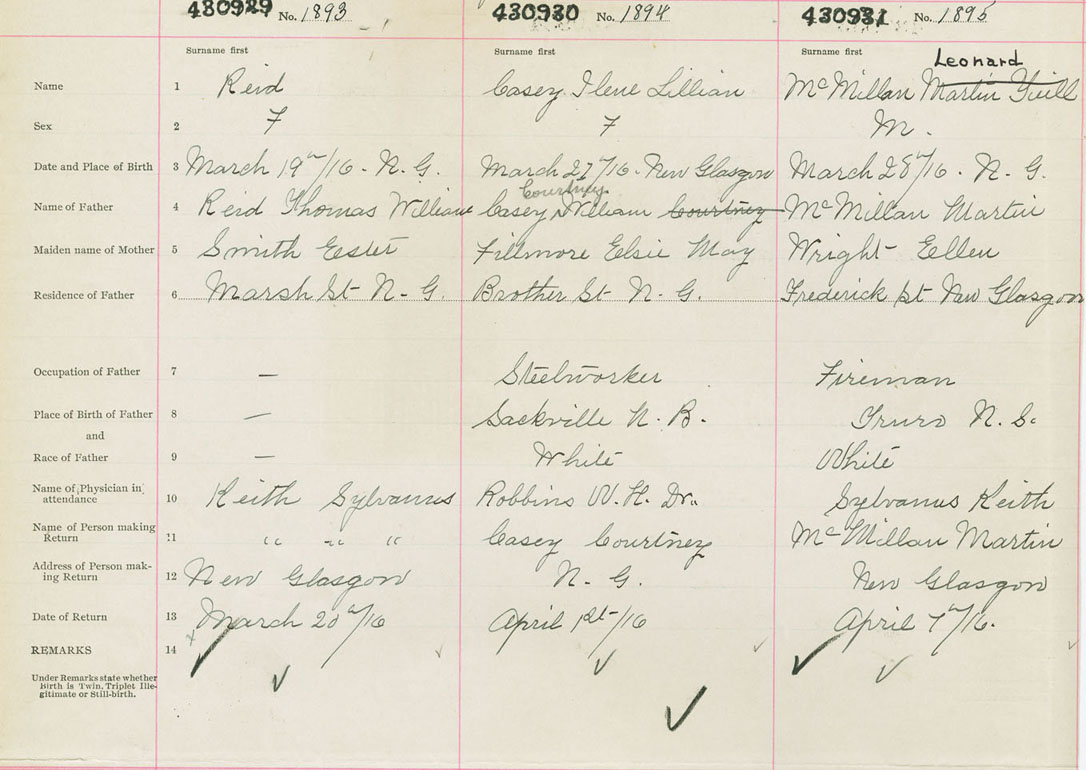 430929 No. 1893 430930 No. 1894 430931 No. 1895
Surname first Surname first Surname first
Leonard
Name 1 Reid Casey Ilene Lillian McMillan Martin Yuill
Sex 2 F F M.
Date and Place of Birth 3 March 19th/16 - N. G. March 27th/16 - New Glasgow March 28th/16 - N. G.
Courtney
Name of Father 4 Reid Thomas William Casey William Courtney McMillan Martin
Maiden name of Mother 5 Smith Ester Fillmore Elsie May Wright Ellen
Residence of Father 6 Marsh St - N - G. Brother St - N. G. Frederick st New Glasgow
Occupation of Father 7 — Steelworker Fireman
Place of Birth of Father 8 — Sackville N. B. Truro N. S.
and
Race of Father 9 — White White
Name of Physician in
attendance 10 Keith Sylvanus Robbins W. H. Dr. Sylvanus Keith
Name of Person making
Return 11 " " " Casey Courtney McMillan Martin
Address of Person mak-
ing Return 12 New Glasgow N. G. New Glasgow
Date of Return 13 March 20th/16 April 1st/16 April 7th/16.
REMARKS 14
Under Remarks state whether
Birth is Twin, Triplet Ille-
gitimate or Still-birth.